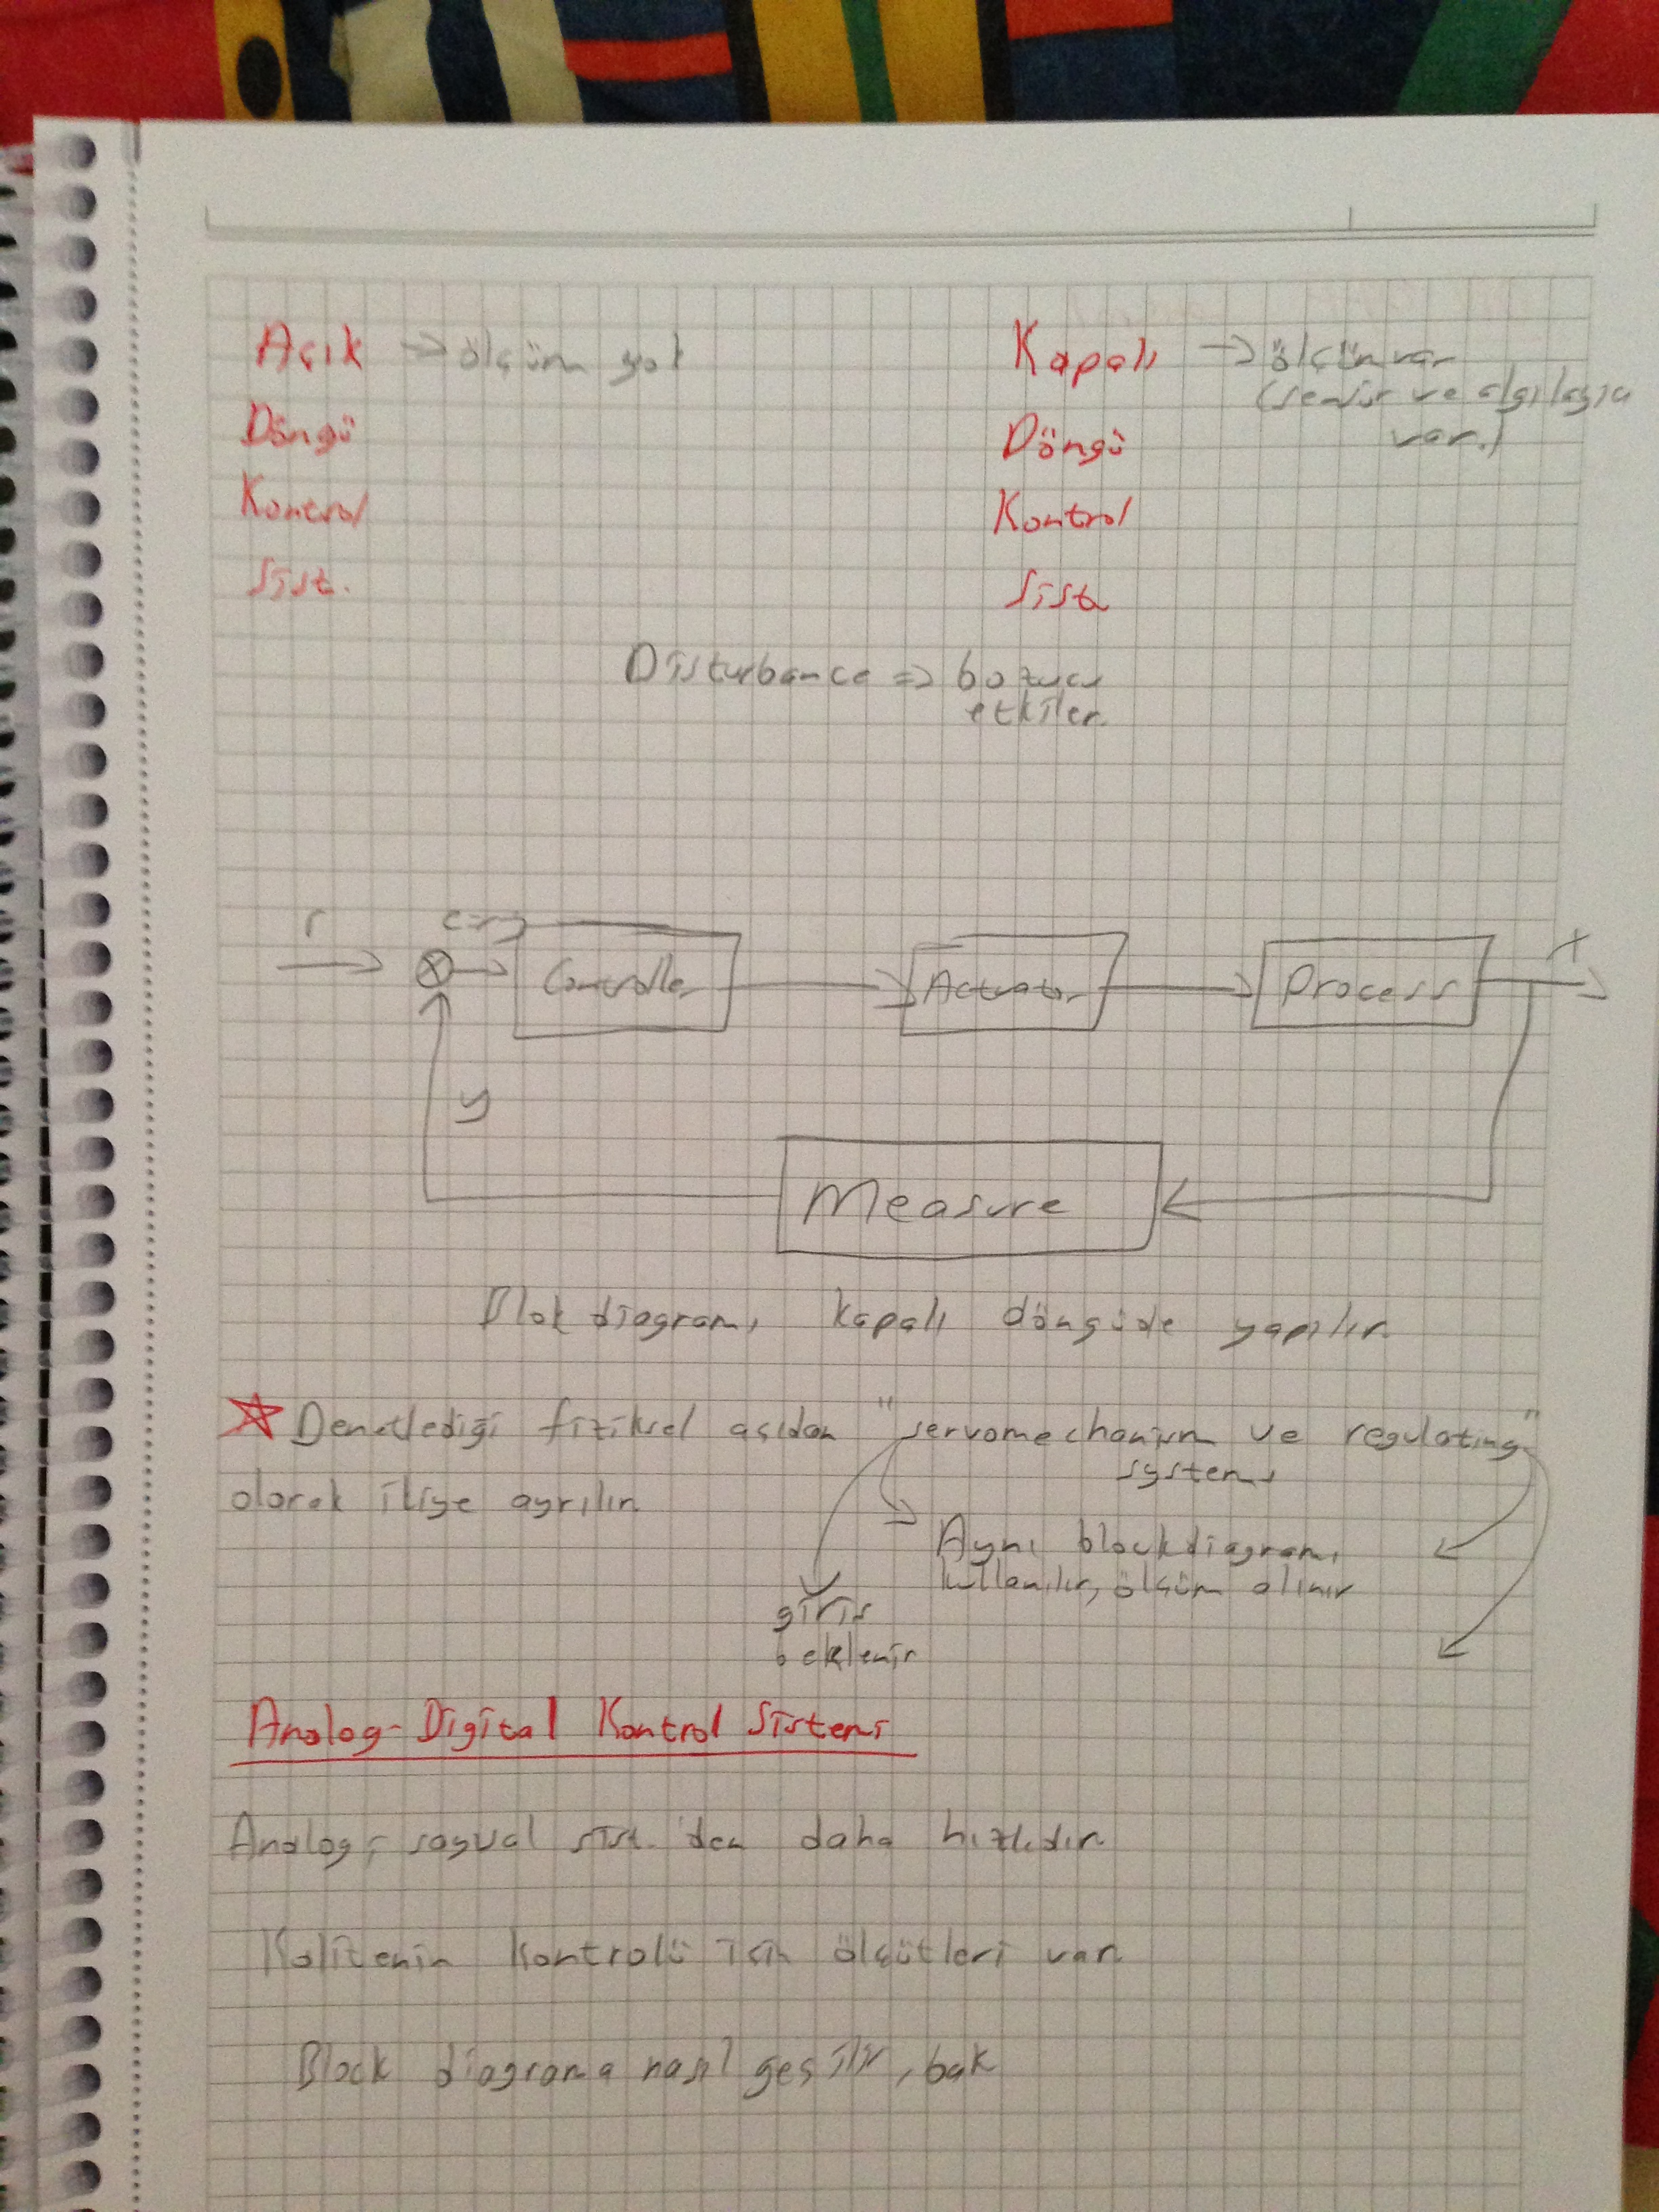 Açık → ölçüm yok
Döngü
Kontrol
Sist.
Kapalı → ölçüm var
(sensör ve algılayıcı
var.)
Döngü
Kontrol
Sist.
Disturbance => bozucu
etkiler.
r
e=r-y
Controller
Actuator
Process
x
y
Measure
Blok diagramı kapalı döngüde yapılır.
☆ Denetlediği fiziksel açıdan "servomechanism ve regulating"
systems
olarak ikiye ayrılır.
Aynı blockdiagramı
kullanılır, ölçüm alınır
giriş
beklenir
Analog-Digital Kontrol Sistemi
Analog; sayısal sist.'den daha hızlıdır.
Kalitenin kontrolü için ölçütleri var.
Block diagrama nasıl geçilir, bak